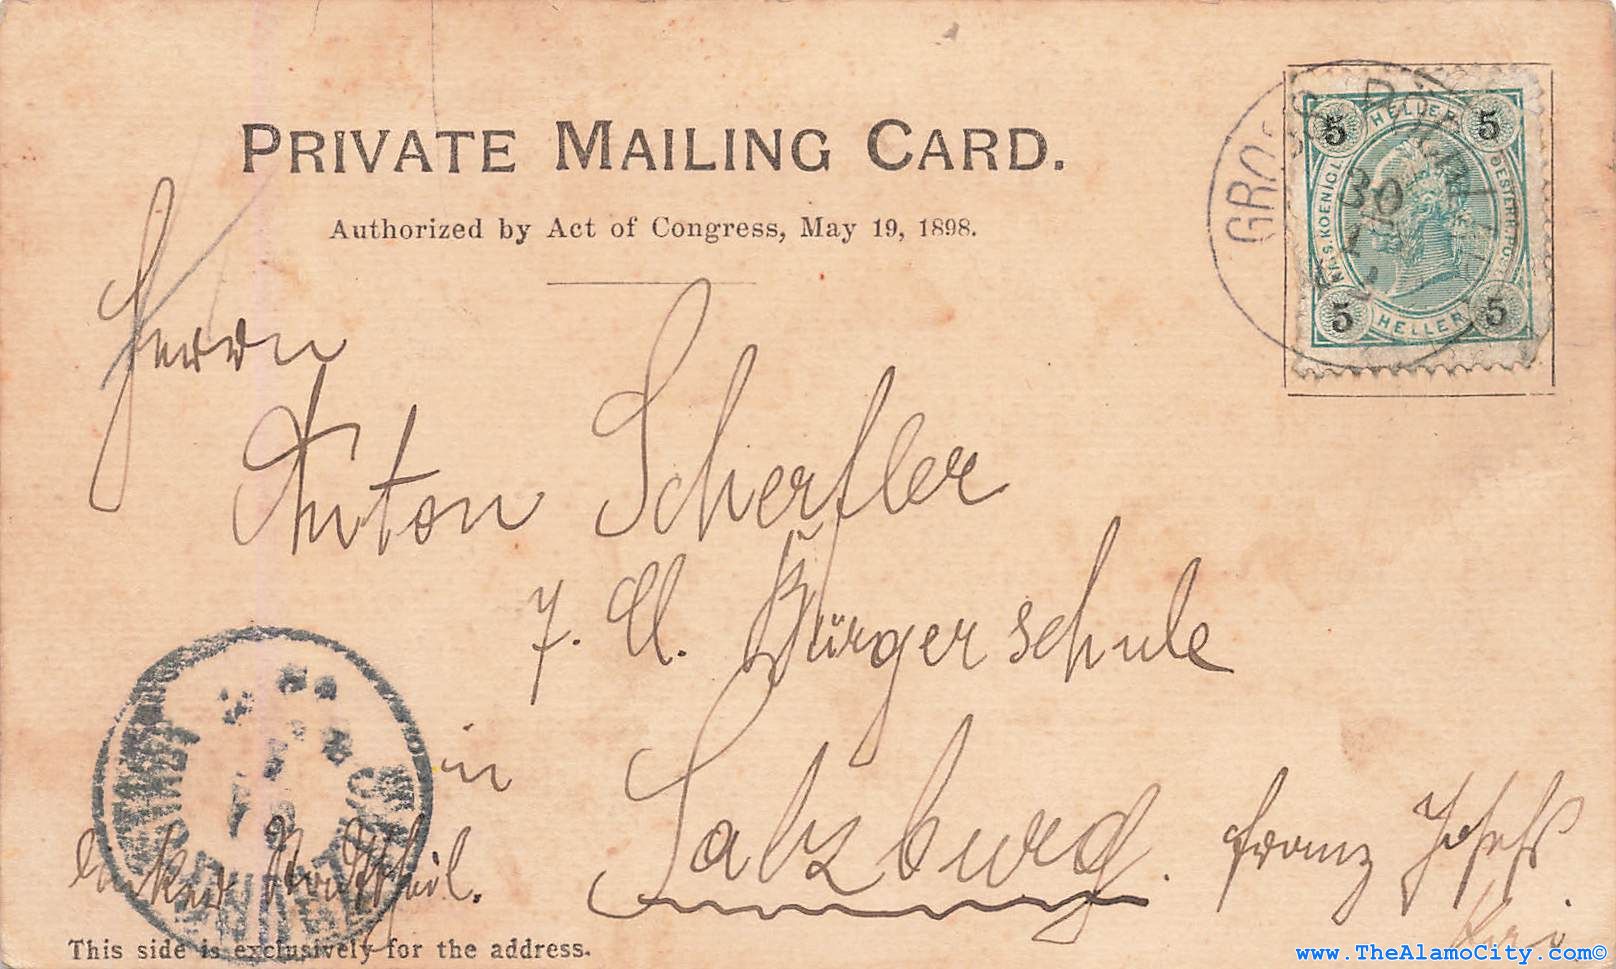 PRIVATE MAILING CARD.
Authorized by Act of Congress, May 19, 1898.
5 HELLER 5
KAIS. KOENIGL. OESTERR. POST
5 HELLER 5
GROSS
30
1
Herrn
Anton Scherfler
7. Cl. Bürgerschule
in Salzburg. Franz Josefs
linker Stadttheil.
This side is exclusively for the address.
www.TheAlamoCity.com©